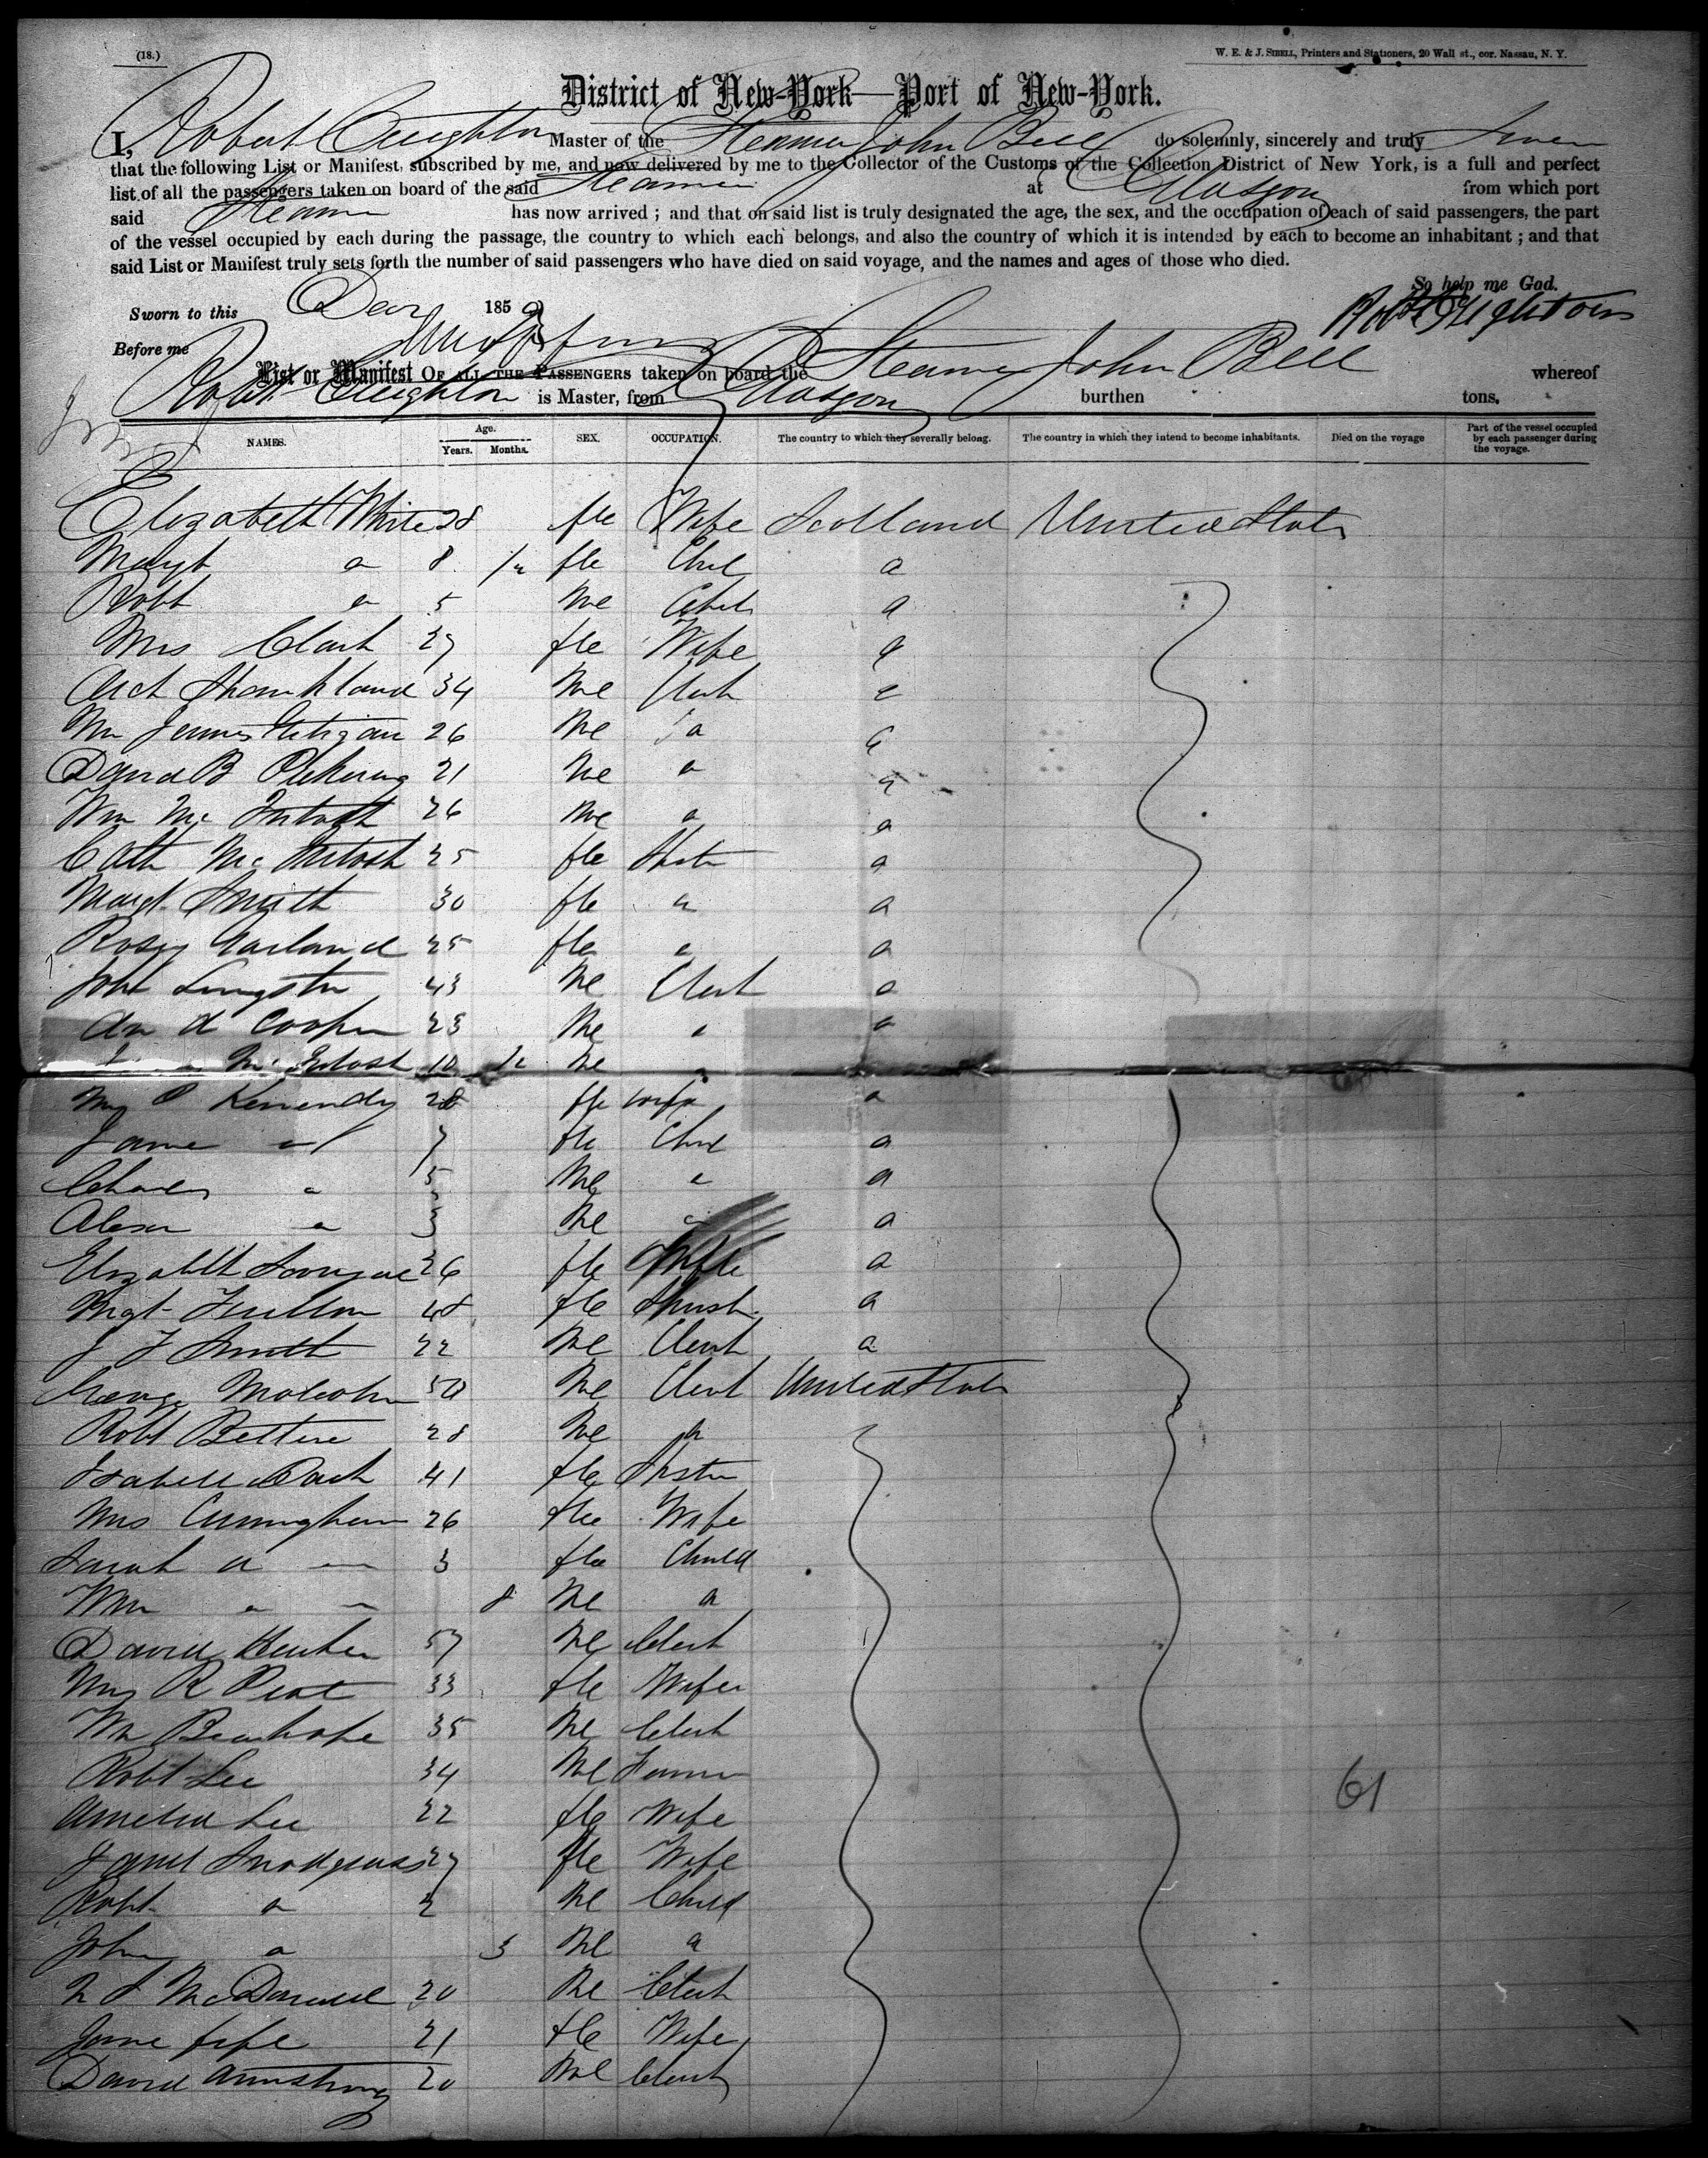 (18.)
W. E. & J. SIBELL, Printers and Stationers, 20 Wall st., cor. Nassau, N. Y.
District of New-York—Port of New-York.
I, Robert Creighton Master of the Steamer John Bell do solemnly, sincerely and truly Swear
that the following List or Manifest, subscribed by me, and now delivered by me to the Collector of the Customs of the Collection District of New York, is a full and perfect
list of all the passengers taken on board of the said Steamer at Glasgow from which port
said Steamer has now arrived ; and that on said list is truly designated the age, the sex, and the occupation of each of said passengers, the part
of the vessel occupied by each during the passage, the country to which each belongs, and also the country of which it is intended by each to become an inhabitant ; and that
said List or Manifest truly sets forth the number of said passengers who have died on said voyage, and the names and ages of those who died.
So help me God.
Sworn to this 185
Robt Creighton
Before me
List or Manifest OF ALL THE PASSENGERS taken on board the Steamer John Bell whereof
Robt Creighton is Master, from Glasgow burthen tons.
NAMES. Age. Years. Months. SEX. OCCUPATION. The country to which they severally belong. The country in which they intend to become inhabitants. Died on the voyage Part of the vessel occupied by each passenger during the voyage.
Elizabeth White 28 fle Wife Scotland United States
Margt a 8 fle Chil a
Robt a 5 Me Chil a
Mrs Clark 27 fle Wife a
Arch Shankland 34 Me Clerk a
26 Me a a
David B Pickering 21 Me a a
Wm Mc Intosh 26 Me a a
Cath Mc Intosh 25 fle a
Margt Smith 30 fle a a
Rosy Garland 25 fle a a
John 43 Me Clerk a
Cooper 23 Me a a
Mc Intosh 10 Me a
Kennedy 28 fle Wife a
Jane a 7 fle Chil a
Charles a 5 Me a a
Alexr a 3 Me a a
Elizabeth 26 fle Wife a
Mgt 48 fle a
J Smith 22 Me Clerk a
George Malcolm 50 Me Clerk United States
Robt 28 Me a
Isabella 41 fle
Mrs Cunningham 26 fle Wife
Sarah a 3 fle Child
Wm a 8 Me a
David 57 Me Clerk
Mrs R Peat 33 fle Wife
35 Me Clerk
Robt Lee 34 Me Farmer
Amelia Lee 22 fle Wife
61
Janet Snodgrass 27 fle Wife
Robt a 2 Me Child
John a 3 Me a
20 Me Clerk
Jane fife 21 fle Wife
David Armstrong 20 Me Clerk